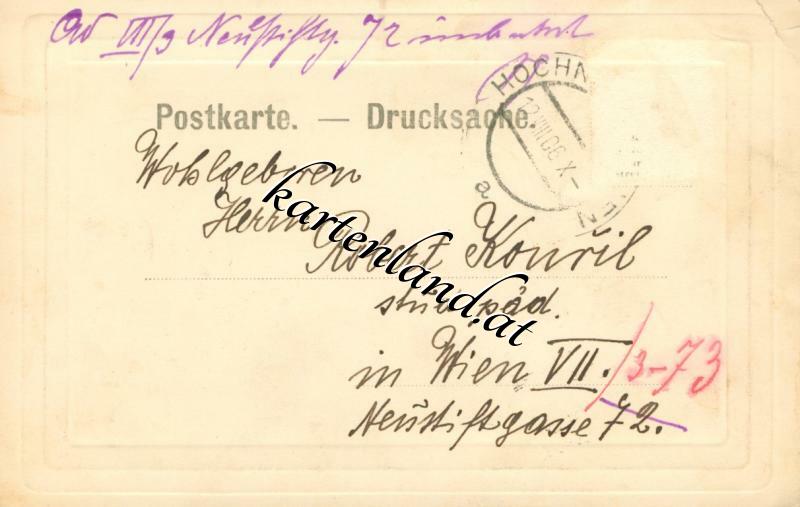 Ad III/3 Neustiftg. 72 unbekannt
HOCHN
12 VIII 06 X-
a
Postkarte. — Drucksache.
Wohlgeboren
Herrn
Robert Konřil
stud. päd.
in Wien VII. /3-73
Neustiftgasse 72.
kartenland.at